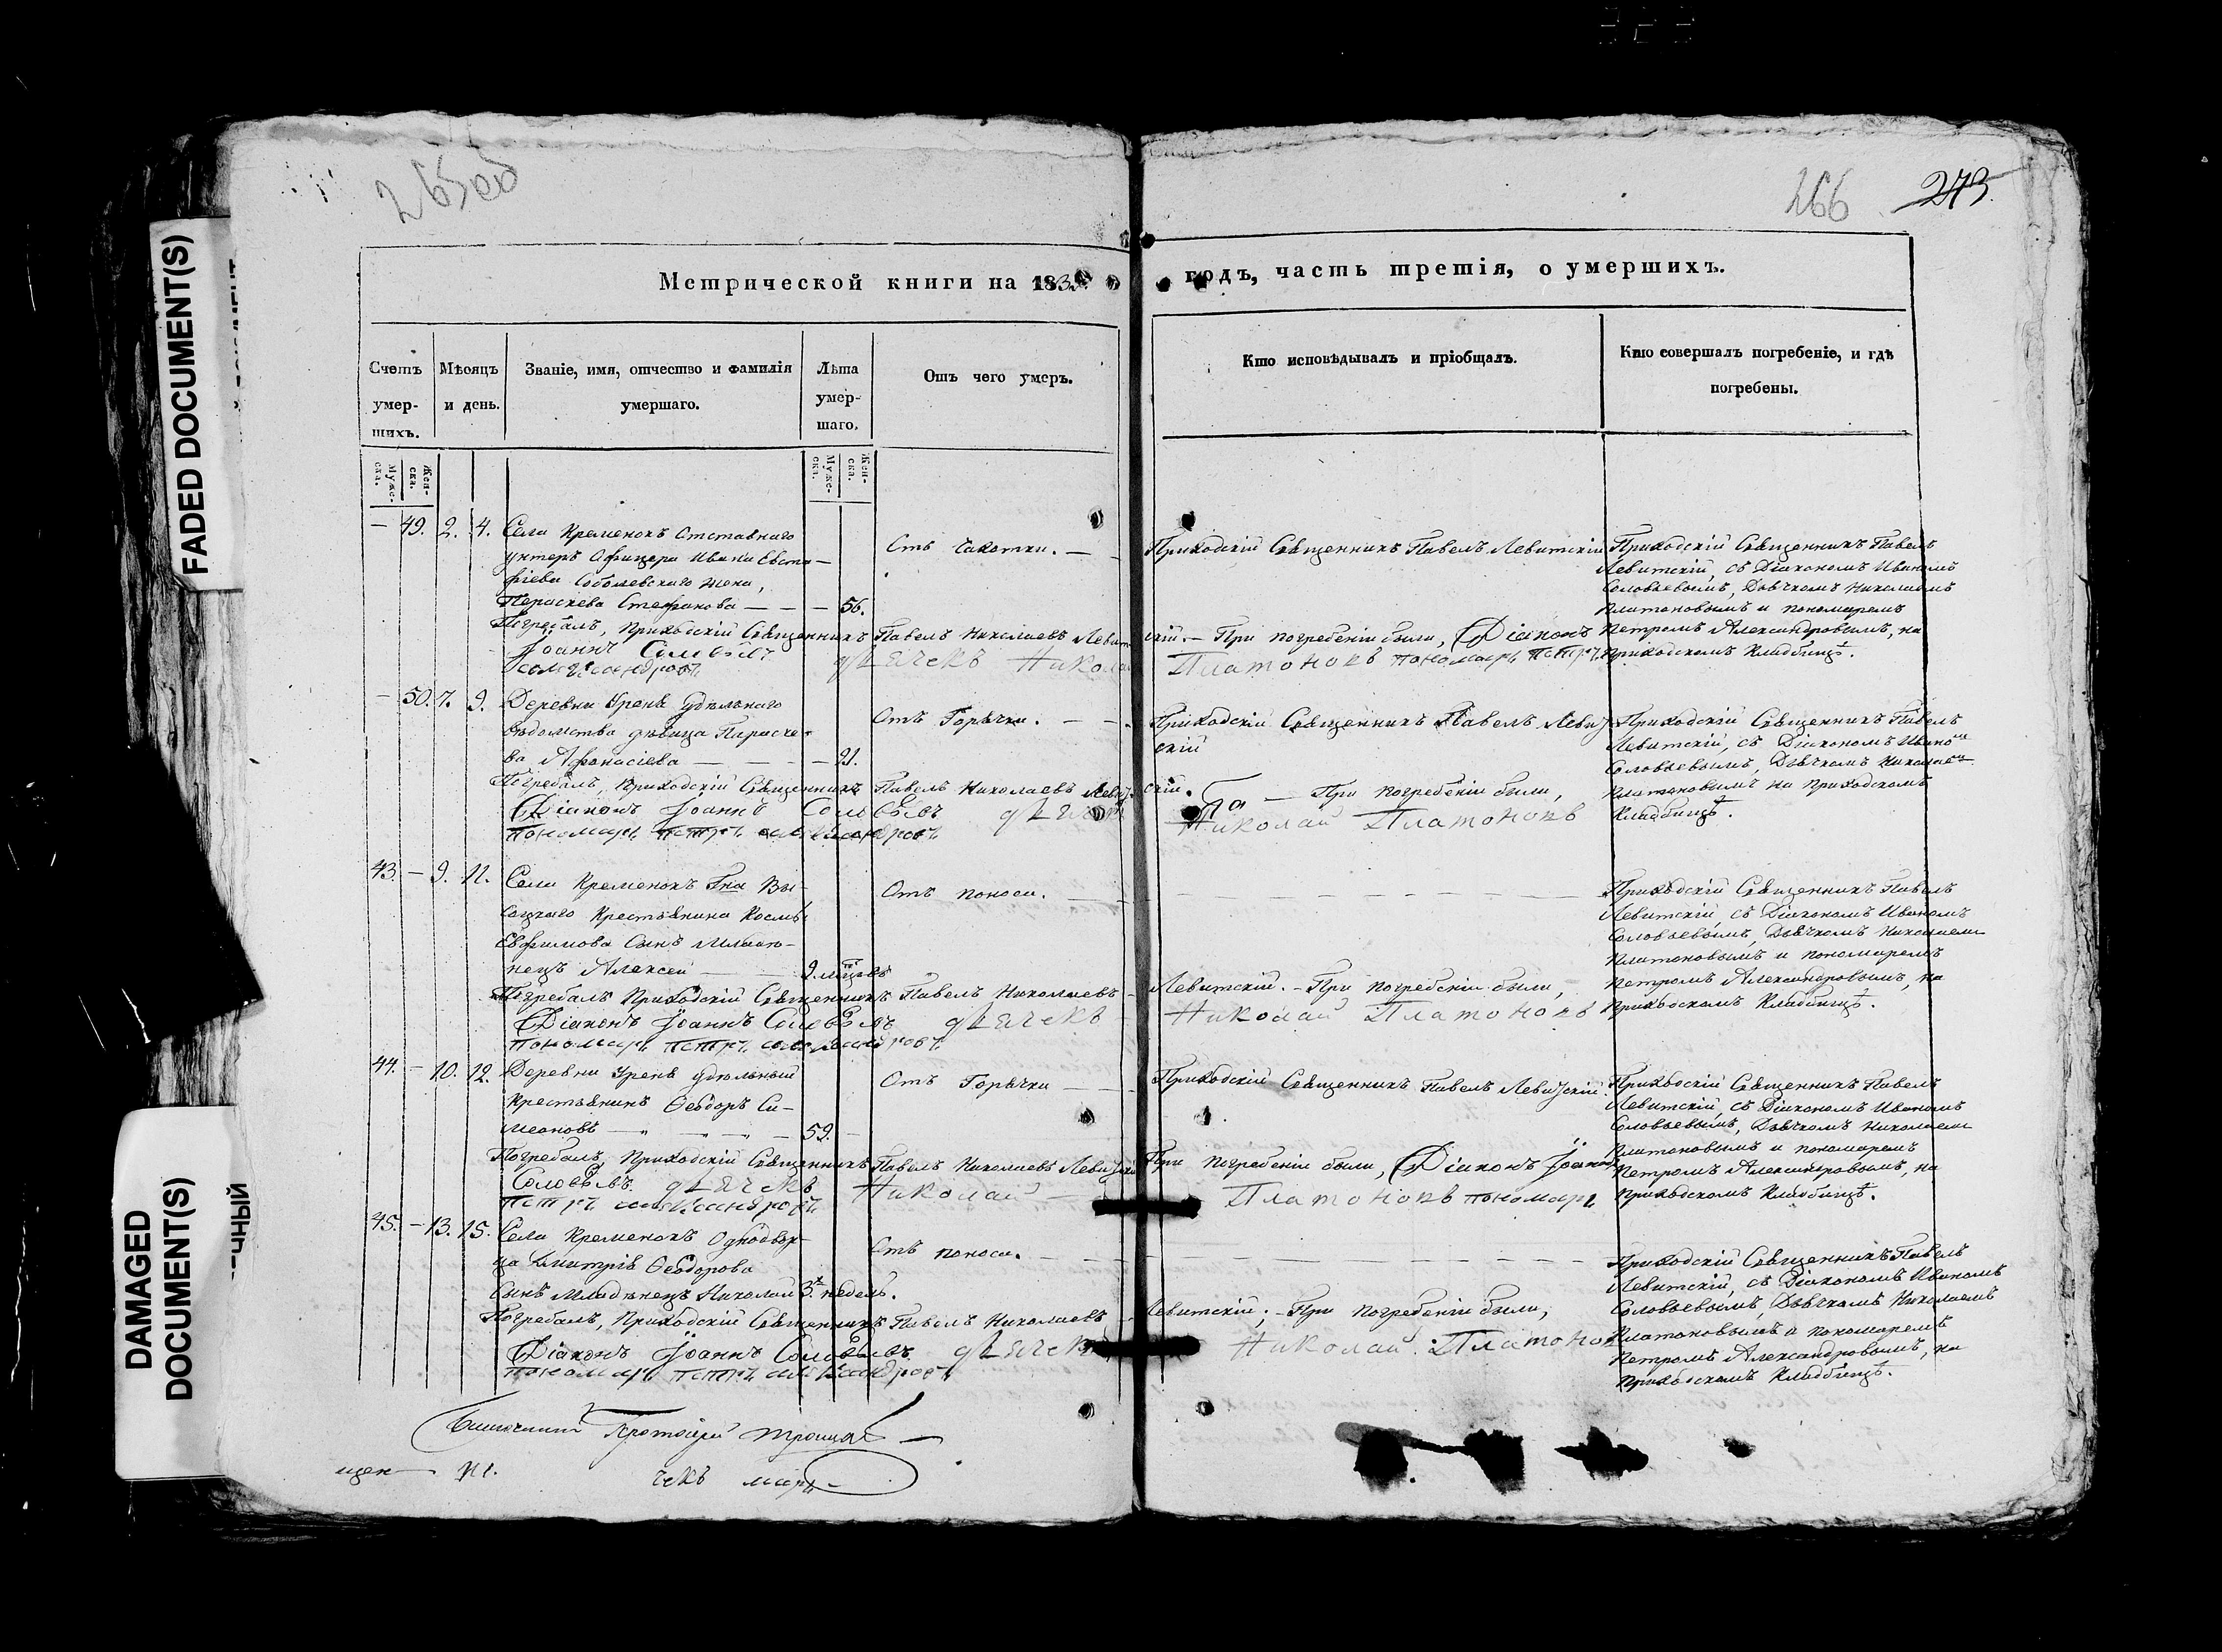 265об
266
273.
Метрической книги на 183
годъ, часть третія, о умершихъ.
Счетъ умер-шихъ.
Мѣсяцъ и день.
Званіе, имя, отчество и фамилія умершаго.
Лѣта умер-шаго.
Отъ чего умеръ.
Кто исповѣдывалъ и пріобщалъ.
Кто совершалъ погребеніе, и гдѣ погребены.
Муже-ска.
Жен-ска.
Муже-ска.
Жен-ска.
— 49. 2. 4. Села Кременокъ Отставнаго
унтеръ Офицера Ивана Евста-
фіева Соболевскаго жена,
Параскева Стефанова — — — 56.
Отъ Чахотки. — —
Приходскій Священникъ Павелъ Левитскій
Приходскій Священникъ Павелъ
Левитскій, съ Діакономъ Иваномъ
Соловьевымъ, Дьячкомъ Николаемъ
Платоновымъ и пономаремъ
Петромъ Александровымъ, на
приходскомъ Кладбищѣ.
Погребалъ, Приходскій Священникъ Павелъ Николаевъ Левитскій. — При погребеніи были, Діаконъ
Іоаннъ Соловьевъ дьячекъ Николай Платоновъ пономарь петръ
александровъ
— 50. 7. 9. Деревни Урень Удѣльнаго
вѣдомства дѣвица Параске-
ва Афанасіева — — — — 21.
Отъ Горячки. — —
Приходскій Священникъ Павелъ Левит-
скій
Приходскій Священникъ Павелъ
Левитскій, съ Діакономъ Иваномъ
Соловьевымъ, Дьячкомъ Николаемъ
Платоновымъ на приходскомъ
Кладбищѣ.
Погребалъ, Приходскій Священникъ Павелъ Николаевъ Левитскій. — При погребеніи были,
Діаконъ Іоаннъ Соловьевъ дьячекъ Николай Платоновъ
пономарь петръ александровъ
43. — 9. 11. Села Кременокъ Гна Вы-
соцкаго Крестьянина Космы
Евфимова Сынъ Младе-
нецъ Алексей — — 9. мцовъ
Отъ поноса. — —
Приходскій Священникъ Павелъ
Левитскій, съ Діакономъ Иваномъ
Соловьевымъ, Дьячкомъ Николаемъ
Платоновымъ и пономаремъ
петромъ Александровымъ, на
приходскомъ Кладбищѣ.
Погребалъ Приходскій Священникъ Павелъ Николаевъ Левитскій. — При погребеніи были,
Діаконъ Іоаннъ Соловьевъ дьячекъ Николай Платоновъ
пономарь петръ александровъ
44. — 10. 12. Деревни Урень Удѣльный
крестьянинъ Ѳеодоръ Си-
меоновъ — — — — 59. —
Отъ Горячки — —
Приходскій Священникъ Павелъ Левитскій.
Приходскій Священникъ Павелъ
Левитскій, съ Діакономъ Иваномъ
Соловьевымъ, Дьячкомъ Николаемъ
Платоновымъ и пономаремъ
Петромъ Александровымъ, на
приходскомъ Кладбищѣ.
Погребалъ, Приходскій Священникъ Павелъ Николаевъ Левитскій При погребеніи были, Діаконъ Іоаннъ
Соловьевъ дьячекъ Николай — Платоновъ пономарь
петръ александровъ
45. — 13. 15. Села Кременокъ Однодвор-
ца Дмитрія Ѳеодорова
Сынъ Младенецъ Николай 3.х недель.
Отъ поноса. —
Приходскій Священникъ Павелъ
Левитскій, съ Діакономъ Иваномъ
Соловьевымъ, Дьячкомъ Николаемъ
Платоновымъ и пономаремъ
Петромъ Александровымъ, на
приходскомъ Кладбищѣ.
Погребалъ, Приходскій Священникъ Павелъ Николаевъ Левитскій. — При погребеніи были,
Діаконъ Іоаннъ Соловьевъ дьячекъ Николай Платонов
пономарь петръ александровъ
Благочинный Протоіерей Троицкій —
щен чекъ марь
FADED DOCUMENT(S)
DAMAGED
DOCUMENT(S)